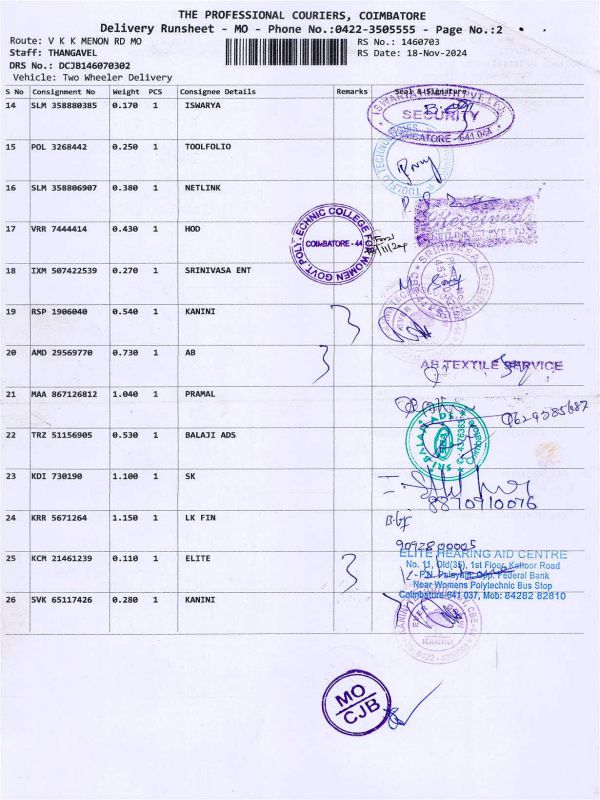 THE PROFESSIONAL COURIERS, COIMBATORE
Delivery Runsheet - MO - Phone No.:0422-3505555 - Page No.:2
Route: V K K MENON RD MO
RS No.: 1460703
Staff: THANGAVEL
RS Date: 18-Nov-2024
DRS No.: DCJB146070302
Vehicle: Two Wheeler Delivery
S No Consignment No Weight PCS Consignee Details Remarks Seal & Signature
14 SLM 358880385 0.170 1 ISWARYA
SECURITY
COIMBATORE - 641 044
15 POL 3268442 0.250 1 TOOLFOLIO
16 SLM 358806907 0.380 1 NETLINK
Received
NETLINK ICT PVT LTD
17 VRR 7444414 0.430 1 HOD
GOVT. POLYTECHNIC COLLEGE FOR WOMEN
COIMBATORE - 44
18 IXM 507422539 0.270 1 SRINIVASA ENT
19 RSP 1906040 0.540 1 KANINI
20 AMD 29569770 0.730 1 AB
AB TEXTILE SERVICE
21 MAA 867126812 1.040 1 PRAMAL
22 TRZ 51156905 0.530 1 BALAJI ADS
SRI BALAJI ADS
23 KDI 730190 1.100 1 SK
8870910076
24 KRR 5671264 1.150 1 LK FIN
9092800005
25 KCM 21461239 0.110 1 ELITE
ELITE HEARING AID CENTRE
No. 11, Old(35), 1st Floor, Kattoor Road
P.N. Palayam, Opp. Federal Bank
Near Womens Polytechnic Bus Stop
Coimbatore-641 037, Mob: 84282 82810
26 SVK 65117426 0.280 1 KANINI
KANINI
MO
CJB